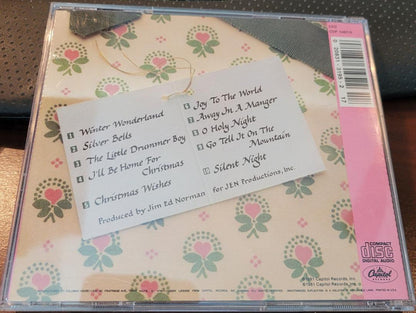 1 Winter Wonderland
2 Silver Bells
3 The Little Drummer Boy
4 I'll Be Home For
Christmas
5 Christmas Wishes
6 Joy To The World
7 Away In A Manger
8 O Holy Night
9 Go Tell It On The
Mountain
10 Silent Night
Produced by Jim Ed Norman for JEN Productions, Inc.
COMPACT
disc
DIGITAL AUDIO
Capitol
1981 Capitol Records, Inc.